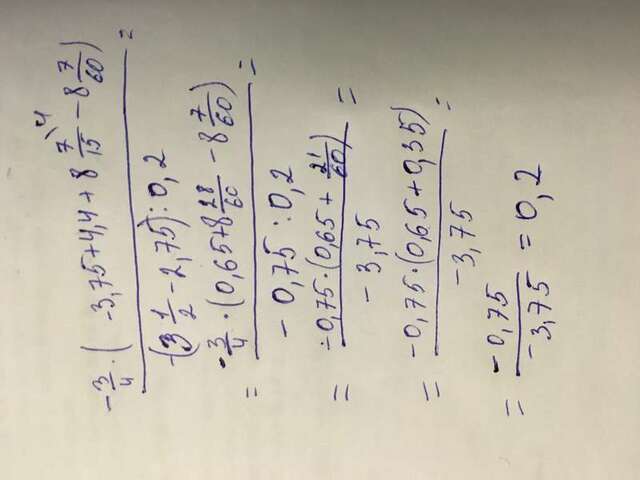 -3/4 · ( -3,75+4,4+8 7/15 \4 - 8 7/60 )
-(3 1/2 - 2,75) : 0,2 =
= -3/4 · (0,65+8 28/60 - 8 7/60)
- 0,75 : 0,2 =
= -0,75 · (0,65 + 21/60)
- 3,75 =
= -0,75 · (0,65+0,35)
-3,75 =
= -0,75
-3,75 = 0,2